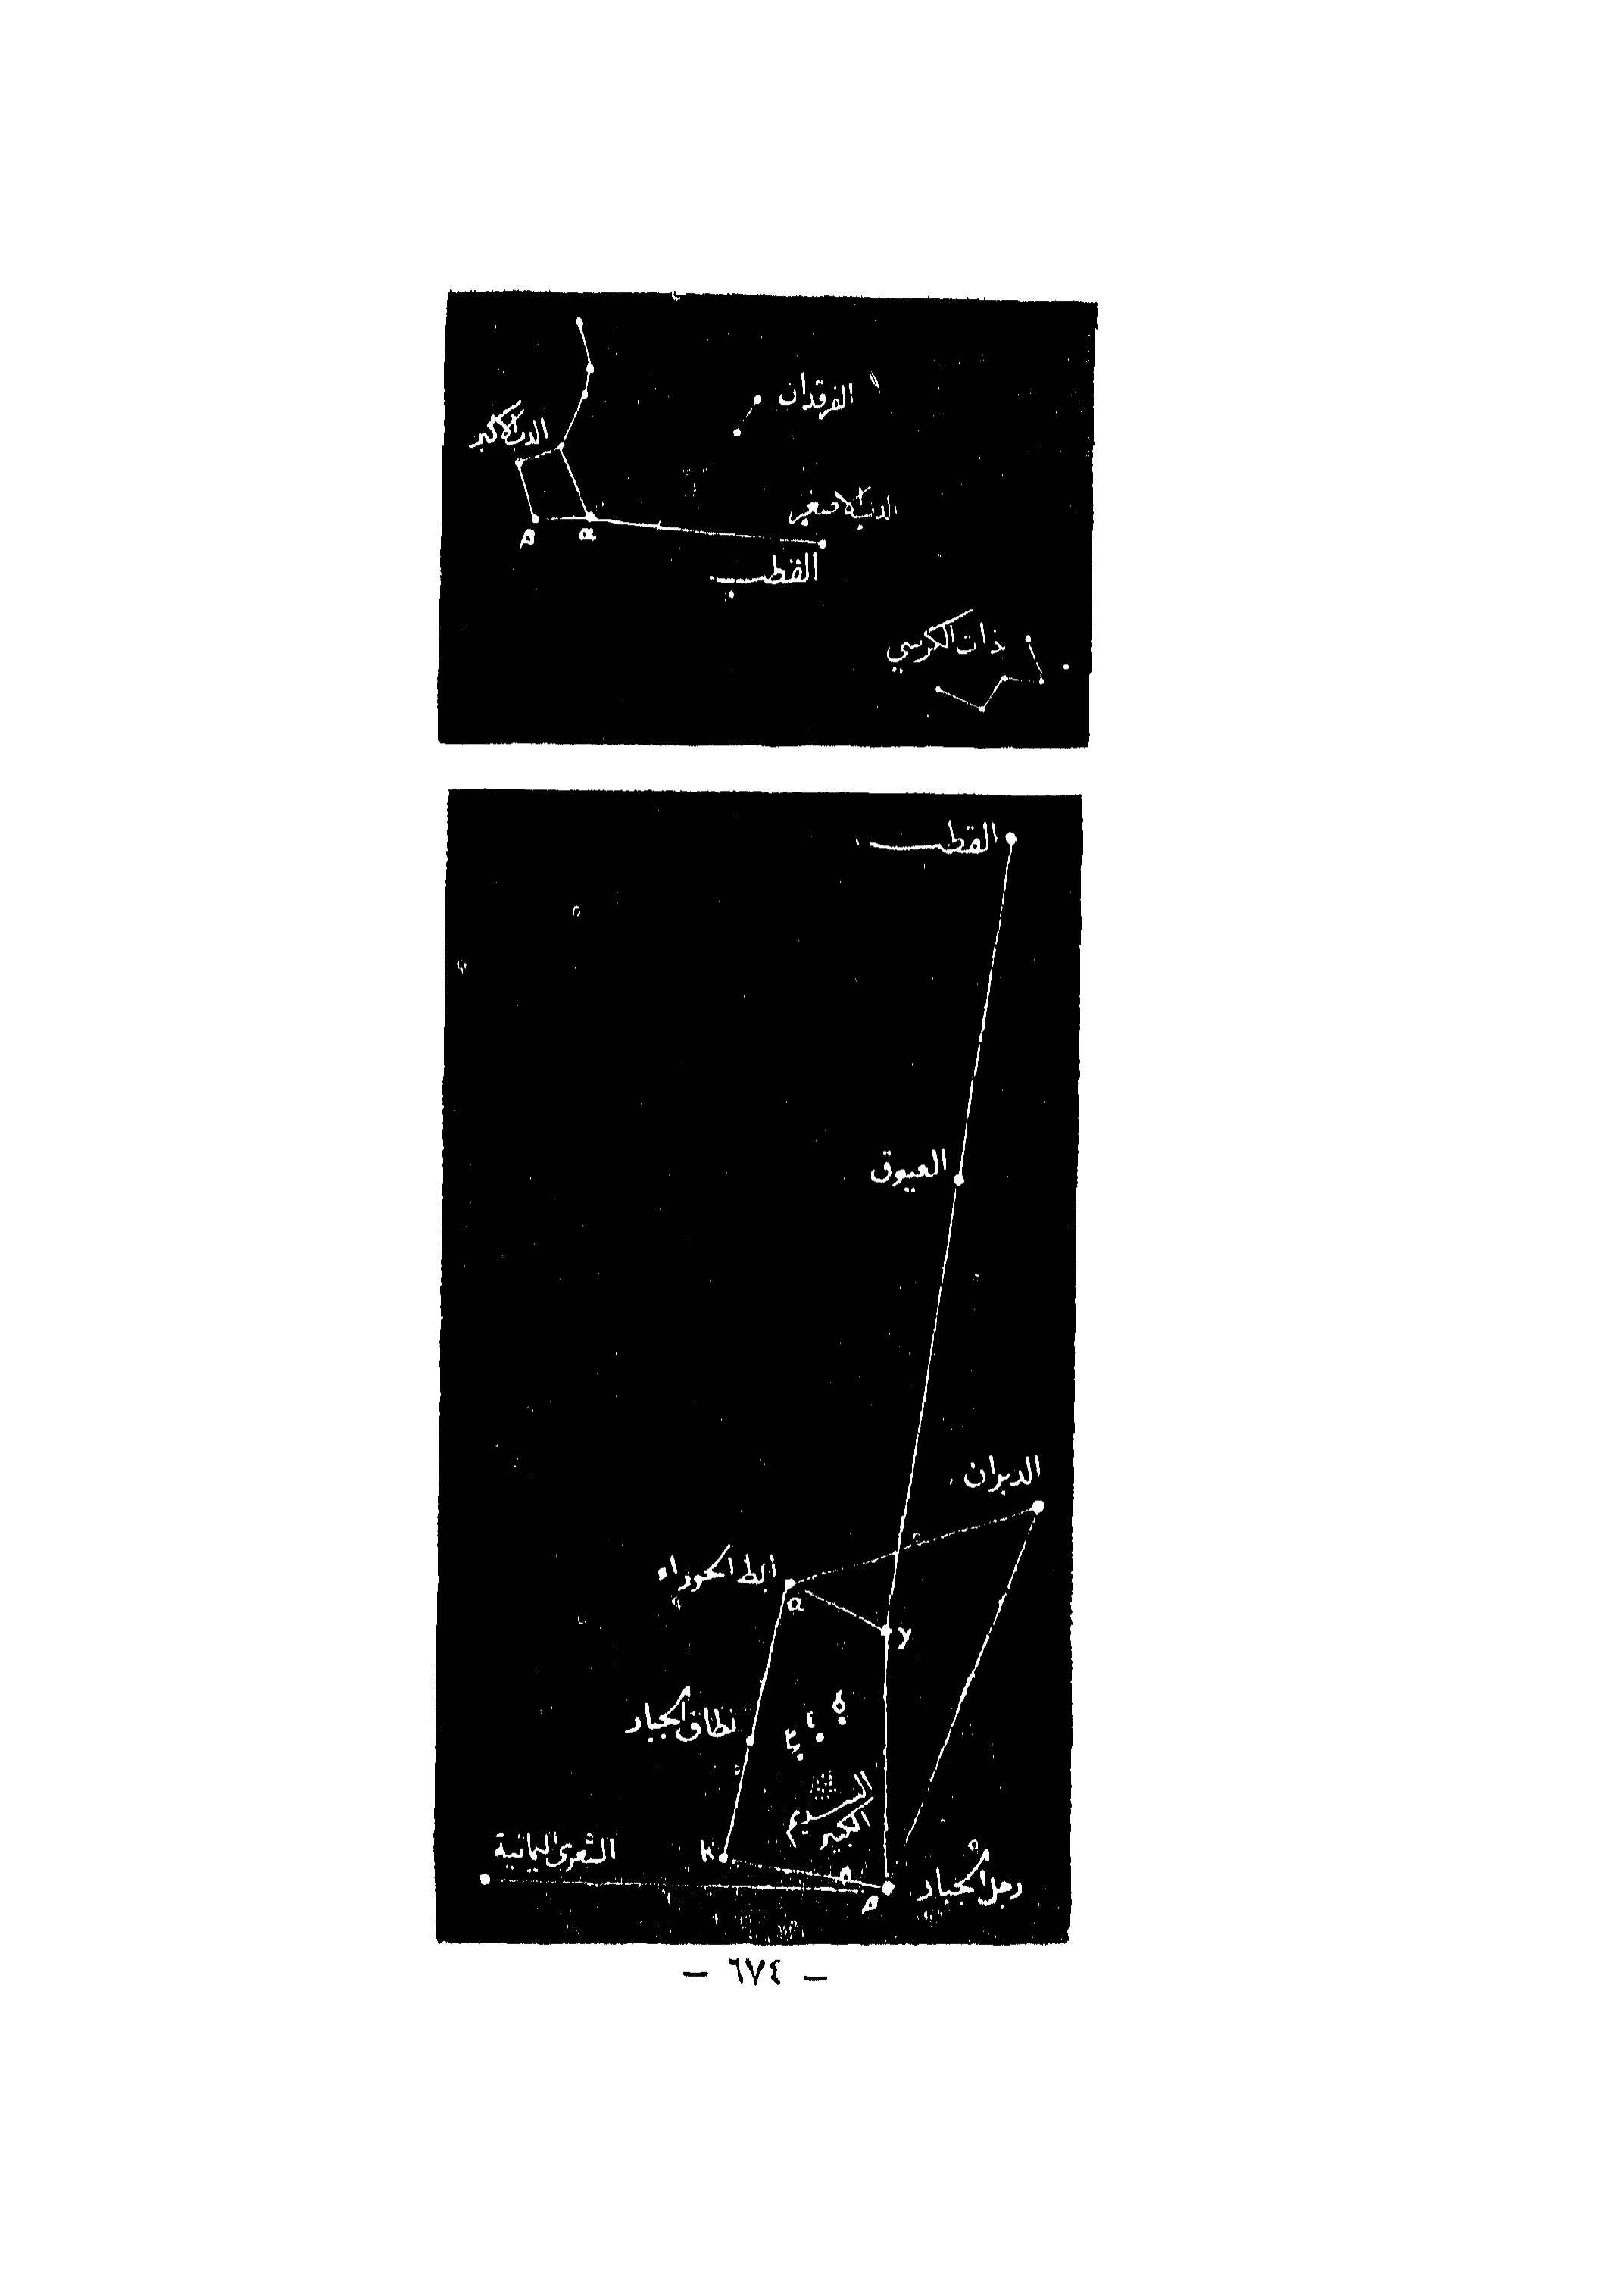 الفرقدان
الدب الاكبر
الدب الاصغر
β α
القطب
ذات الكرسي
القطب
العيوق
الديران
ابط الجوزاء
α
γ
نطاق الجبار
السديم
الكبير
الشعرى اليمانية
k
رجل الجبار
β
– ٦٧٤ –